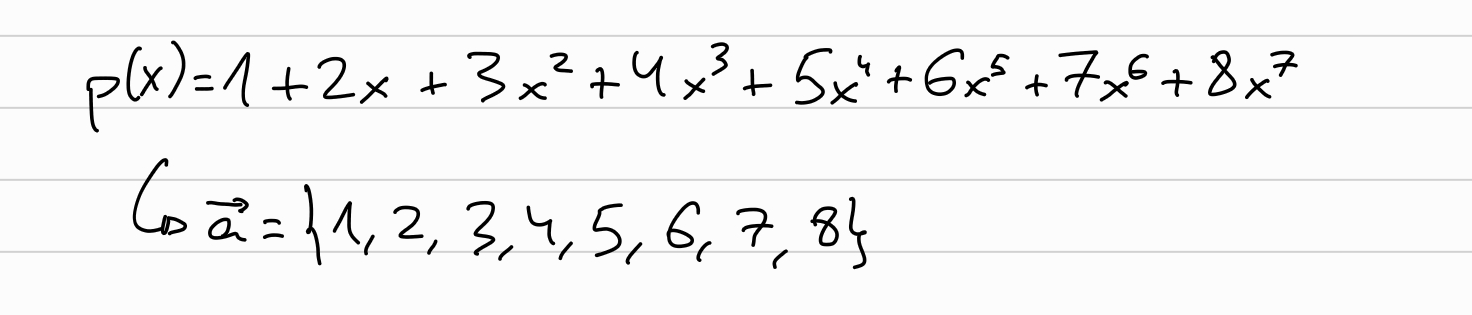 p(x)=1+2x+3x²+4x³+5x⁴+6x⁵+7x⁶+8x⁷
↳ a⃗={1, 2, 3, 4, 5, 6, 7, 8}